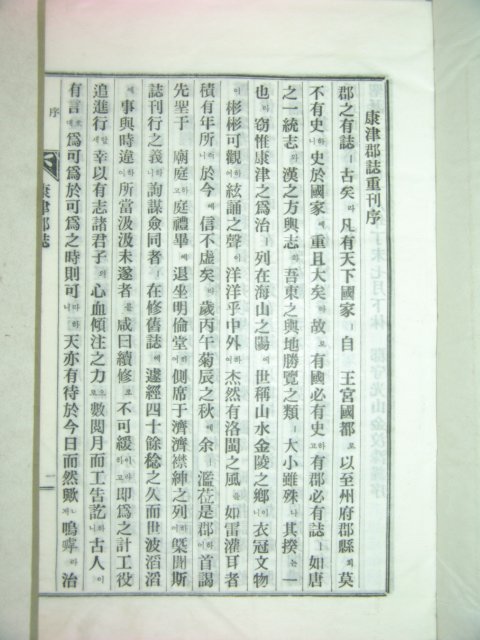 康津郡誌重刊序
郡之有誌ㅣ古矣라凡有天下國家ㅣ自 王宮國都로以至州府郡縣히莫
不有史니史於國家에重且大矣라故로有國必有史고有郡必有誌ㅣ如唐
之一統志와漢之方輿志와吾東之輿地勝覽之類ㅣ大小雖殊나其揆는一
也라窃惟康津之爲治ㅣ列在海山之陽에世稱山水金陵之鄕이衣冠文物
이彬彬可觀하며絃誦之聲이洋洋乎中外하야杰然有洛閩之風을如雷灌耳者
積有年所러니於今에信不虛矣라歲丙午菊辰之秋에余ㅣ濫莅是郡하야首謁
先聖于 廟庭고庭禮畢에退坐明倫堂하야側席于濟濟襟紳之列하야槩聞斯
誌刊行之義하니詢謀僉同者ㅣ在修舊誌에遽經四十餘稔之久而世波滔滔
에事與時違하야所當汲汲未遂者를咸曰續修로不可緩이라하야即爲之計工役
追進行새幸以有志諸君子의心血傾注之力으로數閱月而工告訖하니古人이
有言호대爲可爲於可爲之時則可라하니天亦有待於今日而然歟아嗚呼라治
序
康津郡誌
一